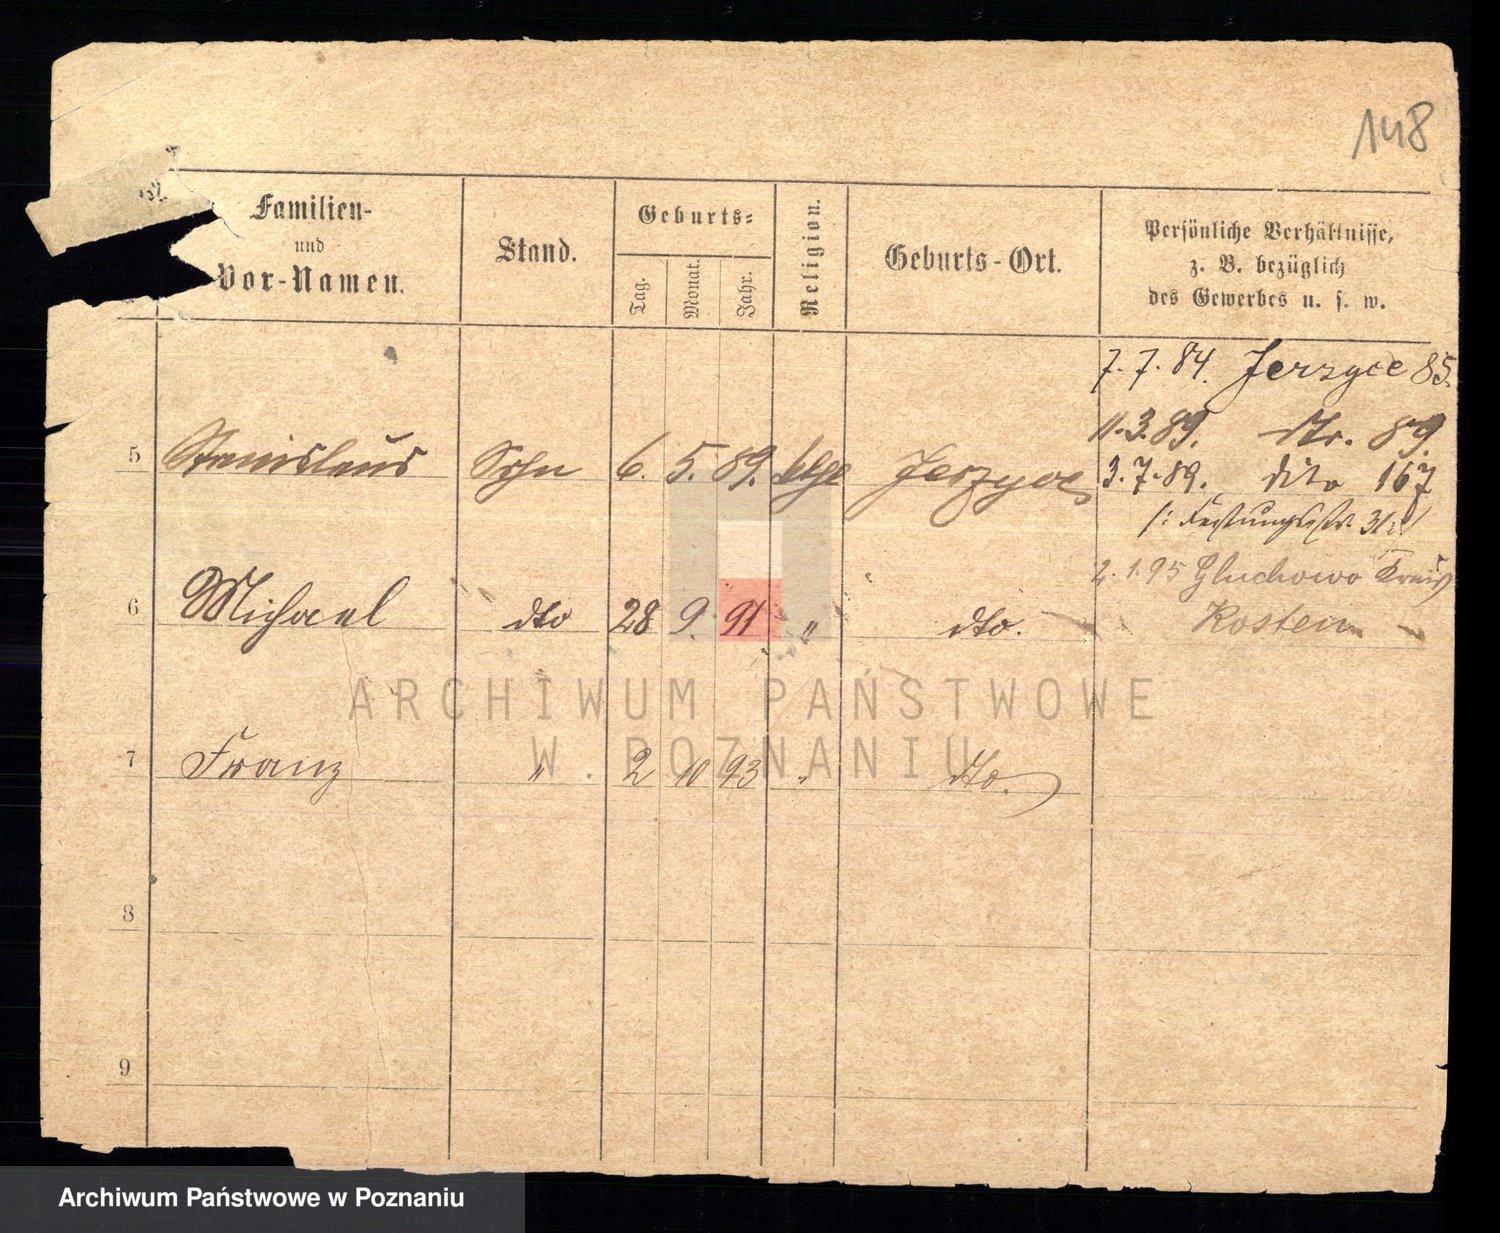 148
Familien-
und
Vor-Namen.
Stand.
Geburts-
Tag.
Monat.
Jahr.
Religion.
Geburts-Ort.
Persönliche Verhältnisse,
z. B. bezüglich
des Gewerbes u. s. w.
7. 7. 84. Jerzyce 85.
11. 3. 89. dto. 89.
5 Stanislaus Sohn 6. 5. 89. kth Jerzyce
3. 7. 89. dito 167
/: Festungsstr.
2. 1. 95 Gluchowo Kreis
6 Michael dto 28 9. 91 " dto.
Kosten
7 Franz " 2 10 93 " dto.
8
9
ARCHIWUM PAŃSTWOWE
W POZNANIU
Archiwum Państwowe w Poznaniu